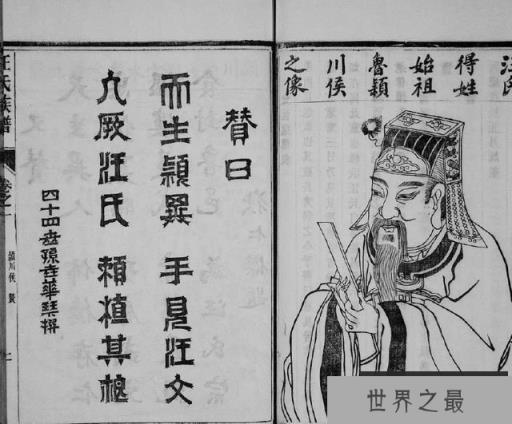 汪氏
得姓
始祖
魯頴
川侯
之像
賛曰
而生頴異 手見汪文
凡厥汪氏 賴植其
四十四世孫 華 撰
汪氏族譜
卷之一
川侯 贊
世界之最